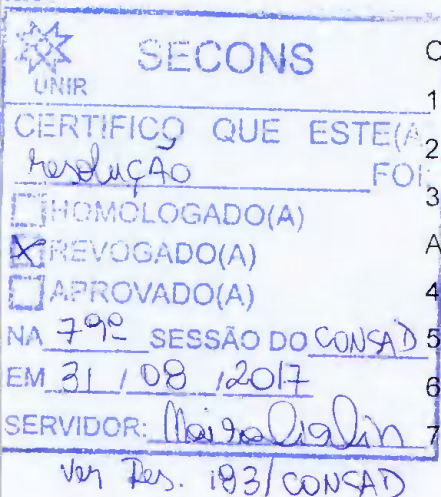 SECONS
UNIR
CERTIFICO QUE ESTE(A
resolução FOI
HOMOLOGADO(A)
X REVOGADO(A)
APROVADO(A)
NA 79ª SESSÃO DO CONSAD
EM 31 / 08 / 2017
SERVIDOR:
Ver Res. 183/CONSAD
C
1
2
3
A
4
5
6
7